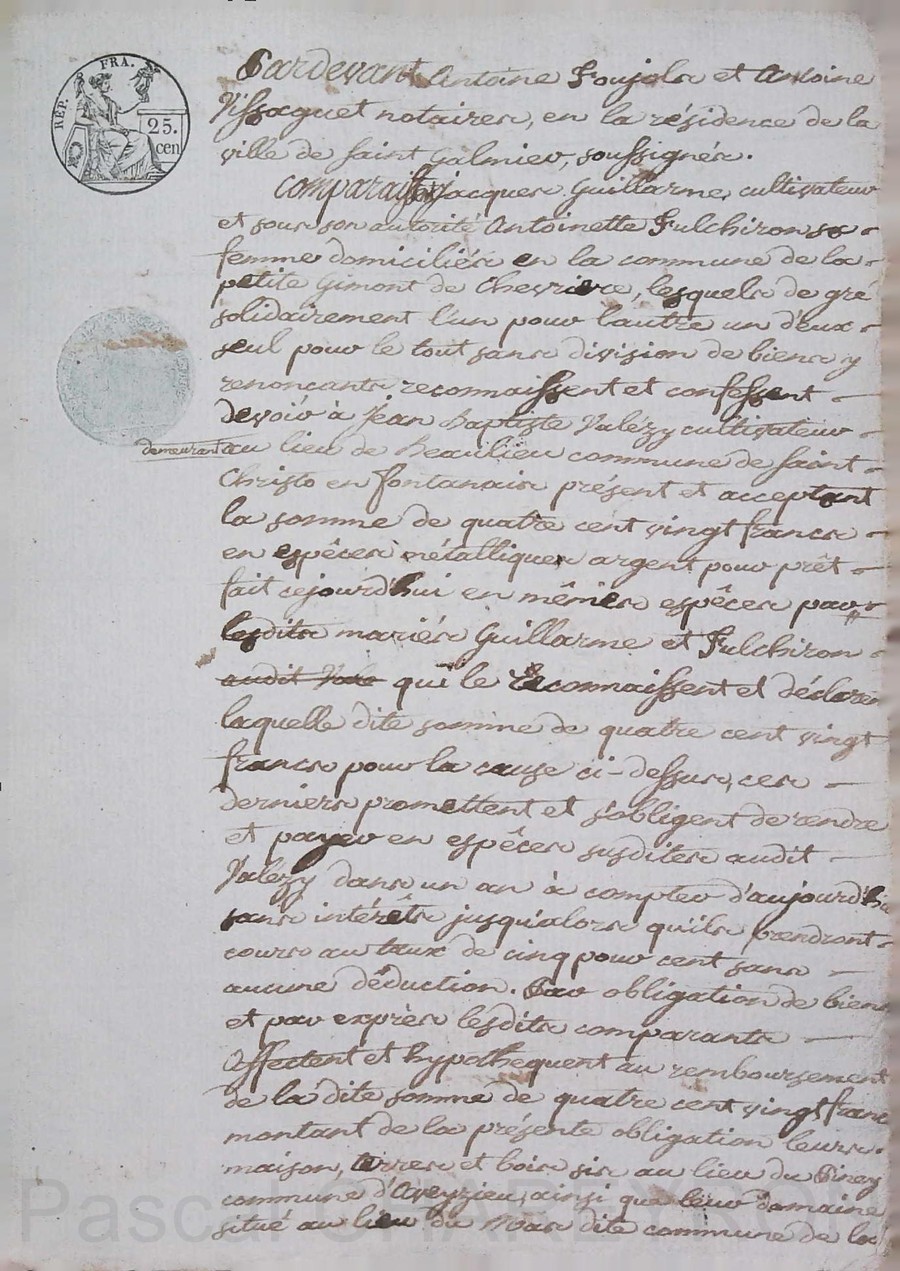 RÉP. FRA.
25.
cen
Pardevant Antoine Foujols et Antoine
Vissaguet notaires, en la résidence de la
ville de Saint Galmier, soussignés.
Comparaissent jacques Guillarme, cultivateur
et sous son autorité Antoinette Fulchiron sa
femme domiciliés en la commune de la
petite Gimont de Chevrière, lesquels de gré
solidairement l'un pour l'autre un d'eux
seul pour le tout sans division de biens y
renonçants reconnaissent et confessent
devoir à Jean Baptiste Valézy cultivateur
demeurant au lieu de Beaulieu commune de Saint
Christo en fontanais présent et acceptant
la somme de quatre cent vingt francs
en espêces métalliques argent pour prêt
fait cejourd'hui en mêmes espêces par
lesdits mariés Guillarme et Fulchiron
audit Vale qui le reconnaissent et déclaren
laquelle dite somme de quatre cent vingt
francs pour la cause ci-dessus, ces
derniers promettent et s'obligent de rendre
et payer en espêces susdites audit
Valézy dans un an à compter d'aujourd'hu
sans intérêts jusqu'alors qu'ils prendront
cours au taux de cinq pour cent sans
aucune déduction. Par obligation de biens
et par exprès lesdits comparants
affectent et hypothequent au remboursement
de la dite somme de quatre cent vingt franc
montant de la présente obligation leurs
maison, terres et bois sis au lieu du Piney
commune d'Aveyzieu, ainsi que leur domaine
situé au lieu du Mas dite commune de la
Pascal CHAREYRON